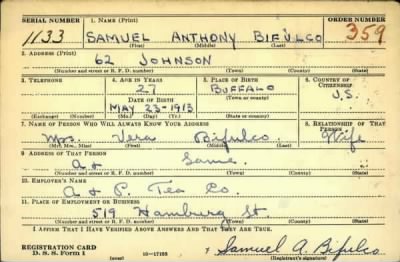 SERIAL NUMBER 1. NAME (Print) ORDER NUMBER
1133 SAMUEL ANTHONY BIFULCO 359
(First) (Middle) (Last)
2. ADDRESS (Print)
62 JOHNSON
(Number and street or R. F. D. number) (Town) (County) (State)
3. TELEPHONE 4. AGE IN YEARS 5. PLACE OF BIRTH 6. COUNTRY OF CITIZENSHIP
27 BUFFALO U.S.
DATE OF BIRTH (Town or county)
MAY 23-1913
(Exchange) (Number) (Mo.) (Day) (Yr.) (State or country)
7. NAME OF PERSON WHO WILL ALWAYS KNOW YOUR ADDRESS 8. RELATIONSHIP OF THAT PERSON
Mrs. Vera Bifulco. Wife
(Mr., Mrs., Miss) (First) (Middle) (Last)
9. ADDRESS OF THAT PERSON
Same.
(Number and street or R. F. D. number) (Town) (County) (State)
10. EMPLOYER'S NAME
A & P. Tea Co.
11. PLACE OF EMPLOYMENT OR BUSINESS
519 Hamburg St.
(Number and street or R. F. D. number) (Town) (County) (State)
I AFFIRM THAT I HAVE VERIFIED ABOVE ANSWERS AND THAT THEY ARE TRUE.
REGISTRATION CARD
D. S. S. Form 1 16-17105 Samuel A. Bifulco
(Registrant's signature)